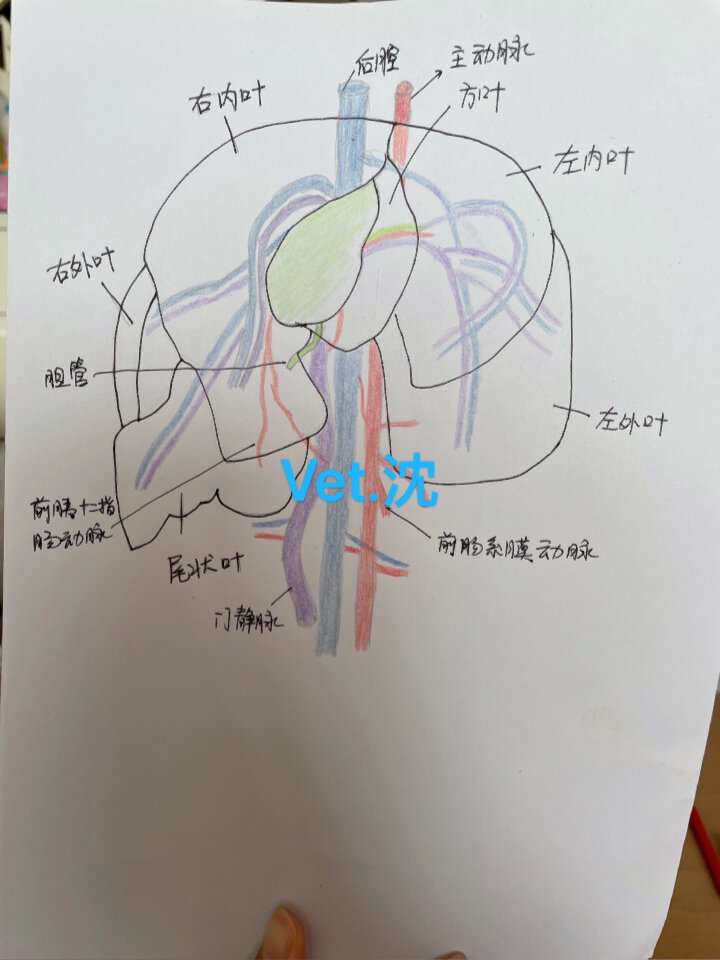 后腔
主动脉
右内叶
方叶
左内叶
右外叶
胆管
左外叶
Vet.沈
前胰十二指
肠动脉
前肠系膜动脉
尾状叶
门静脉